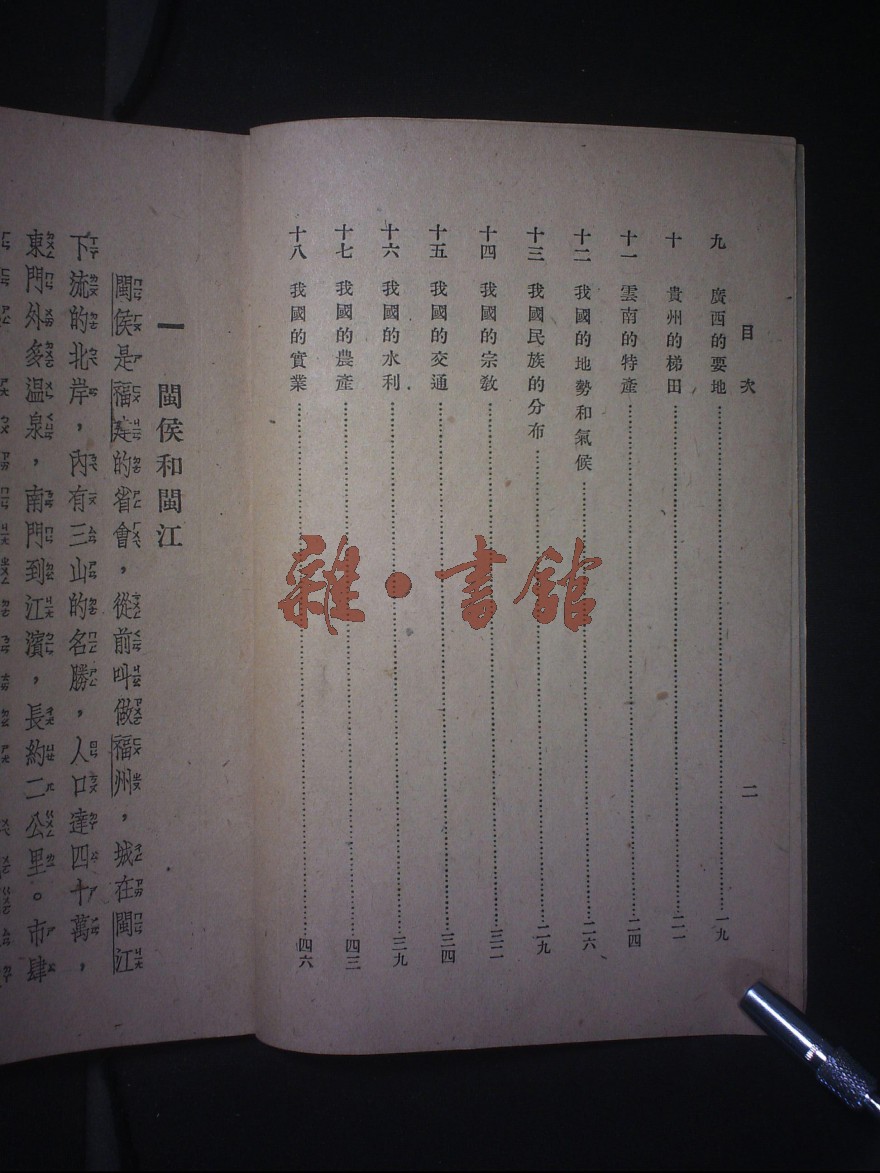 目次
二
九 廣西的要地 一九
十 貴州的梯田 二一
十一 雲南的特產 二四
十二 我國的地勢和氣候 二六
十三 我國民族的分布 二九
十四 我國的宗教 三二
十五 我國的交通 三四
十六 我國的水利 三九
十七 我國的農產 四三
十八 我國的實業 四六
雜·書館
一 閩侯和閩江
閩侯是福建的省會，從前叫做福州，城在閩江
下流的北岸，內有三山的名勝，人口達四十萬，
東門外多温泉，南門到江濱，長約二公里。市肆